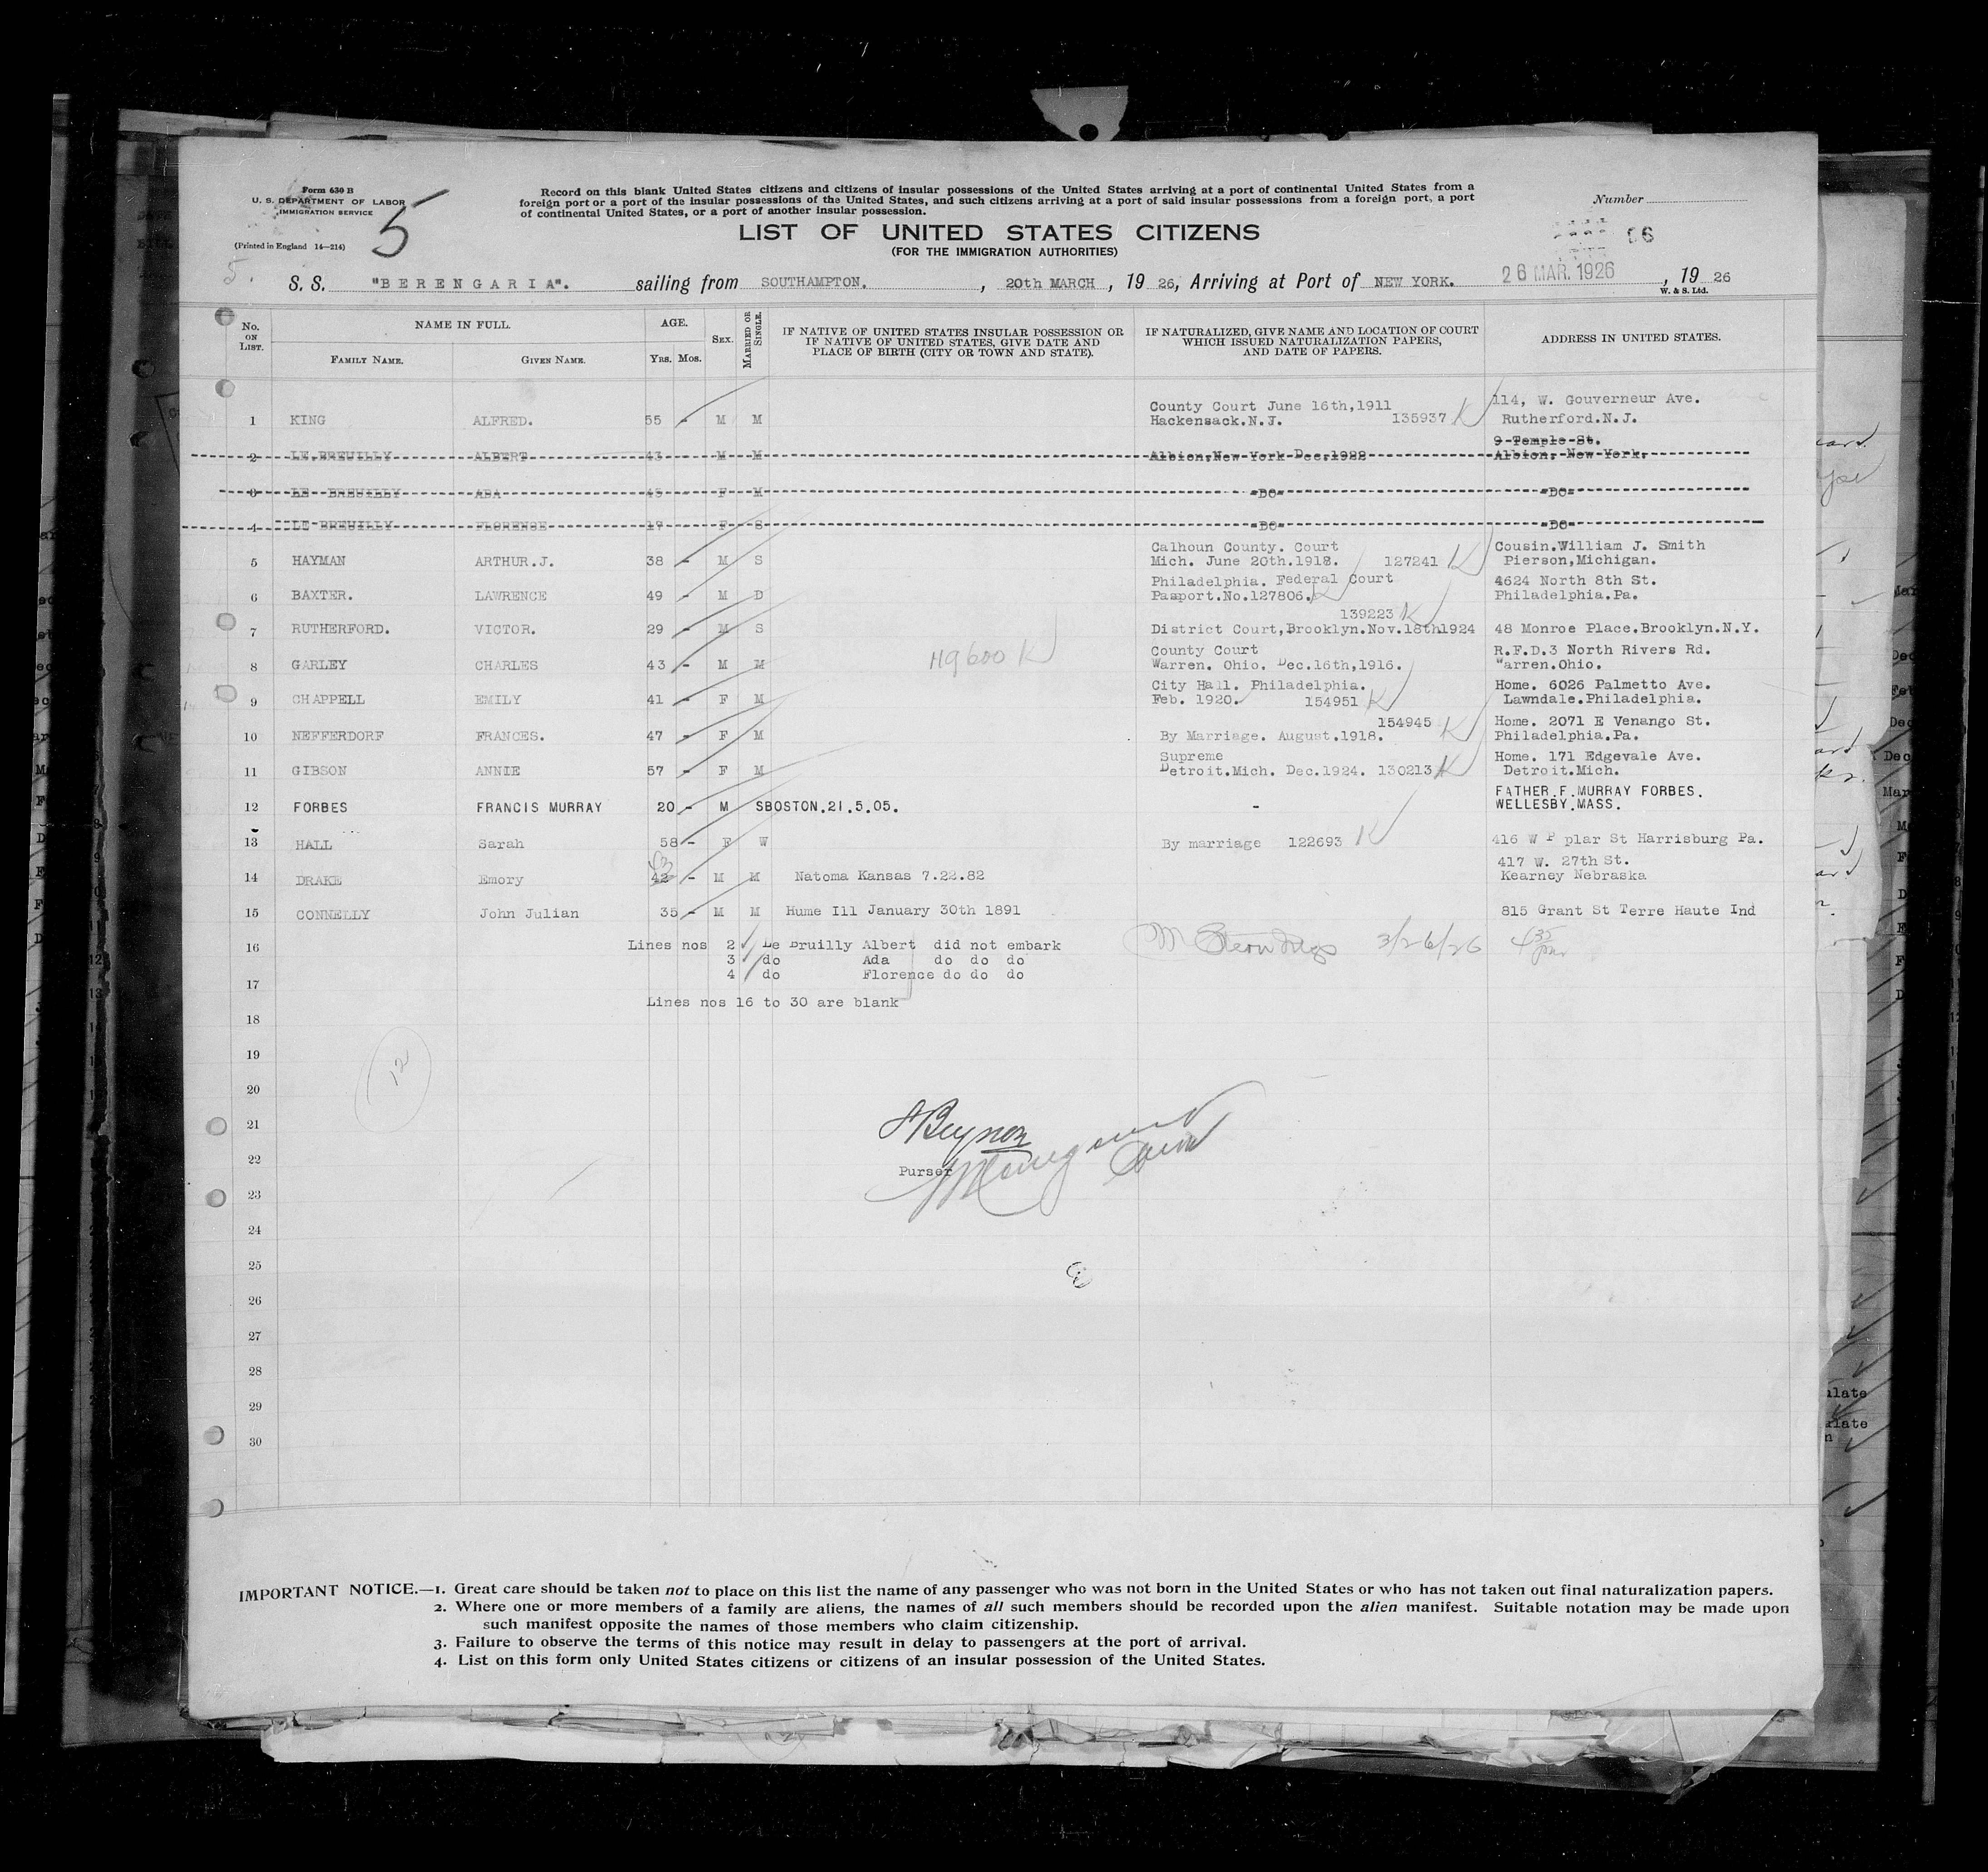 Form 630 B
U. S. DEPARTMENT OF LABOR
IMMIGRATION SERVICE
(Printed in England 14—214)
5
Record on this blank United States citizens and citizens of insular possessions of the United States arriving at a port of continental United States from a
foreign port or a port of the insular possessions of the United States, and such citizens arriving at a port of said insular possessions from a foreign port, a port
of continental United States, or a port of another insular possession.
Number
LIST OF UNITED STATES CITIZENS
(FOR THE IMMIGRATION AUTHORITIES)
5.
S. S. "BERENGARIA". sailing from SOUTHAMPTON. , 20th MARCH , 19 26, Arriving at Port of NEW YORK. 26 MAR. 1926 , 19 26
W. & S. Ltd.
No. ON LIST. NAME IN FULL. AGE. SEX. MARRIED OR SINGLE. IF NATIVE OF UNITED STATES INSULAR POSSESSION OR IF NATIVE OF UNITED STATES, GIVE DATE AND PLACE OF BIRTH (CITY OR TOWN AND STATE). IF NATURALIZED, GIVE NAME AND LOCATION OF COURT WHICH ISSUED NATURALIZATION PAPERS, AND DATE OF PAPERS. ADDRESS IN UNITED STATES.
FAMILY NAME. GIVEN NAME. YRS. MOS.
County Court June 16th,1911 114, W. Gouverneur Ave.
1 KING ALFRED. 55 - M M Hackensack.N.J. 135937 K Rutherford.N.J.
9 Temple St.
2 LE.BREUILLY ALBERT 43 M M Albion,New York Dec.1922 Albion, New York.
3 LE BREUILLY ADA 45 F M -DO- -DO-
4 LE BREUILLY FLORENCE 17 F S -DO- -DO-
Calhoun County. Court Cousin.William J. Smith
5 HAYMAN ARTHUR.J. 38 - M S Mich. June 20th.1918. 127241 K Pierson,Michigan.
Philadelphia. Federal Court 4624 North 8th St.
6 BAXTER. LAWRENCE 49 - M D Pasport.No.127806. K Philadelphia.Pa.
139223 K
7 RUTHERFORD. VICTOR. 29 - M S District Court,Brooklyn.Nov.18th1924 48 Monroe Place.Brooklyn.N.Y.
County Court R.F.D.3 North Rivers Rd.
8 GARLEY CHARLES 43 - M M K Warren. Ohio. Dec.16th,1916. Warren.Ohio.
City Hall. Philadelphia. Home. 6026 Palmetto Ave.
9 CHAPPELL EMILY 41 - F M Feb. 1920. 154951 K Lawndale.Philadelphia.
154945 K Home. 2071 E Venango St.
10 NEFFERDORF FRANCES. 47 - F M By Marriage. August.1918. Philadelphia.Pa.
Supreme Home. 171 Edgevale Ave.
11 GIBSON ANNIE 57 - F M Detroit.Mich. Dec.1924. 130213 K Detroit.Mich.
FATHER.F.MURRAY FORBES.
12 FORBES FRANCIS MURRAY 20 - M S BOSTON.21.5.05. - WELLESBY.MASS.
13 HALL Sarah 58 - F W By marriage 122693 K 416 W P plar St Harrisburg Pa.
43 417 W. 27th St.
14 DRAKE Emory 42 - M M Natoma Kansas 7.22.82 Kearney Nebraska
15 CONNELLY John Julian 35 - M M Hume Ill January 30th 1891 815 Grant St Terre Haute Ind
16 Lines nos 2 Le Bruilly Albert did not embark 3/26/26
3 do Ada do do do
4 do Florence do do do
17
Lines nos 16 to 30 are blank
18
19
12
20
21
Beynon
22
Purser
23
24
25
26
27
28
29
30
IMPORTANT NOTICE.—1. Great care should be taken not to place on this list the name of any passenger who was not born in the United States or who has not taken out final naturalization papers.
2. Where one or more members of a family are aliens, the names of all such members should be recorded upon the alien manifest. Suitable notation may be made upon
such manifest opposite the names of those members who claim citizenship.
3. Failure to observe the terms of this notice may result in delay to passengers at the port of arrival.
4. List on this form only United States citizens or citizens of an insular possession of the United States.